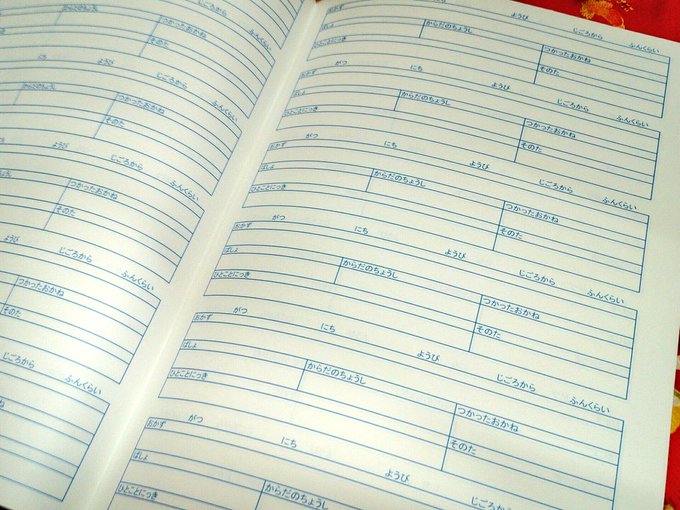 ふんくらい
からだのちょうし つかったおかね
そのた
にち ようび じごろから ふんくらい
からだのちょうし つかったおかね
そのた
ようび じごろから ふんくらい
つかったおかね
そのた
ようび じごろから ふんくらい
つかったおかね
そのた
じごろから ふんくらい
にち ようび じごろから ふんくらい
ばしょ
ひとことにっき からだのちょうし つかったおかね
そのた
おかず がつ にち ようび じごろから ふんくらい
ばしょ
ひとことにっき からだのちょうし つかったおかね
そのた
おかず がつ にち ようび じごろから ふんくらい
ばしょ
ひとことにっき からだのちょうし つかったおかね
そのた
おかず がつ にち ようび じごろから ふんくらい
ばしょ
ひとことにっき からだのちょうし つかったおかね
そのた
おかず がつ にち ようび じごろから ふんくらい
ばしょ
ひとことにっき からだのちょうし つかったおかね
そのた
おかず がつ にち ようび
ばしょ
ひとことにっき からだのちょうし